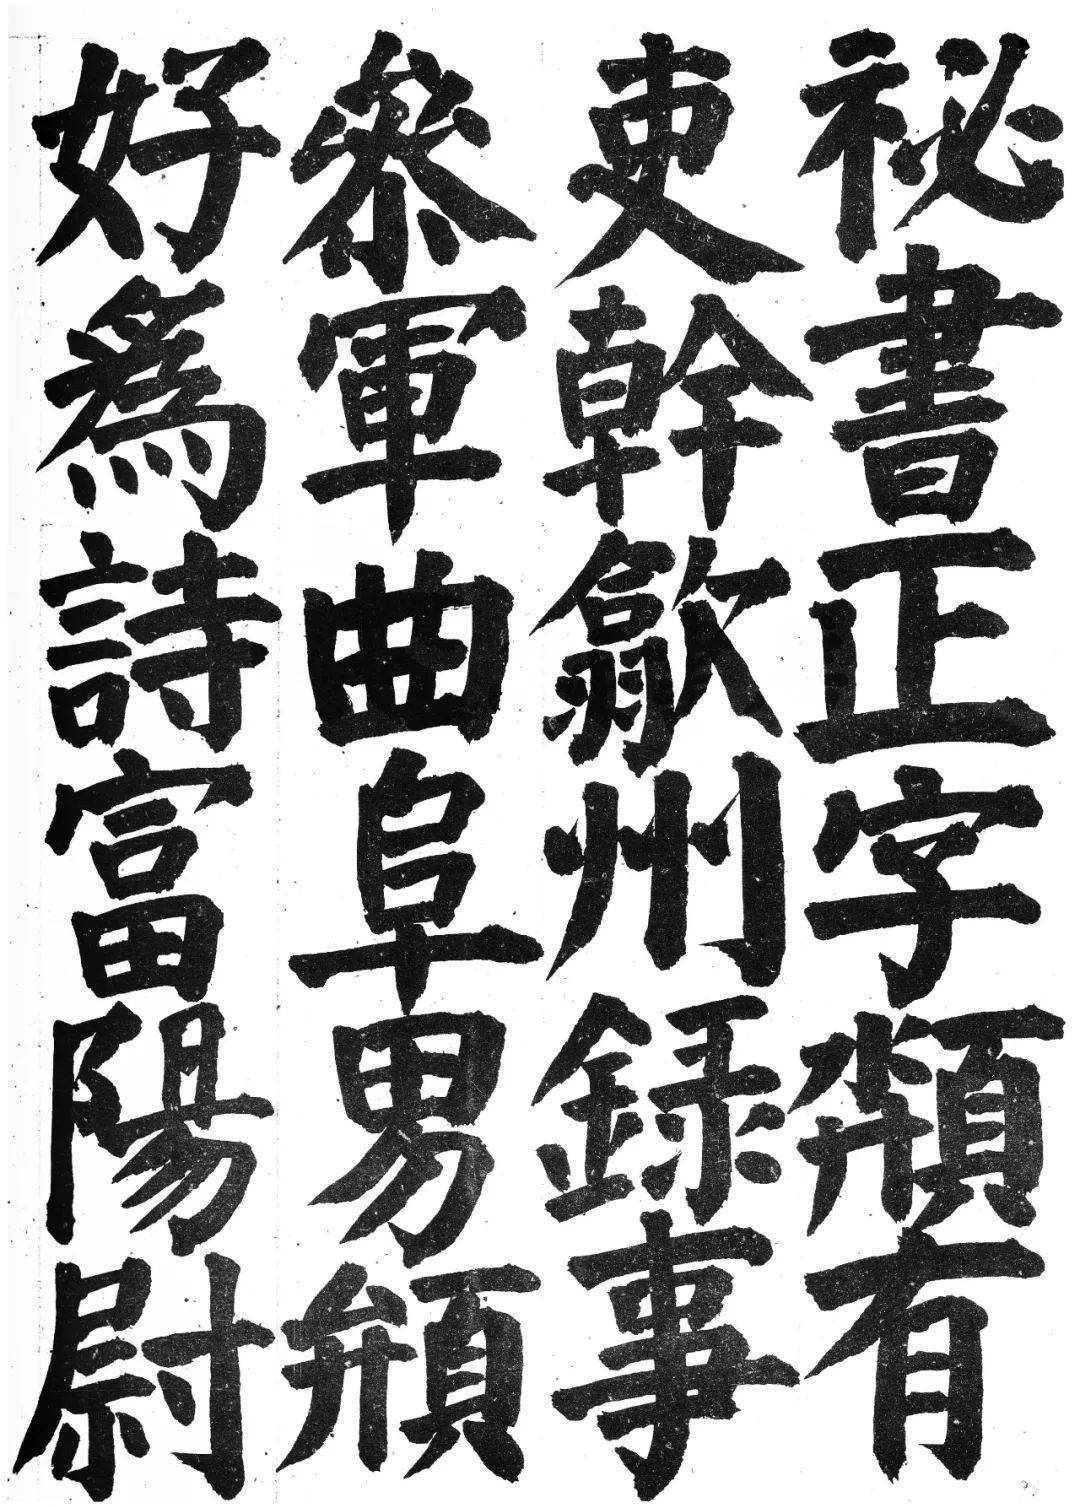 祕書正字頩有
吏幹歙州錄事
參軍曲阜男頩
好爲詩富陽尉